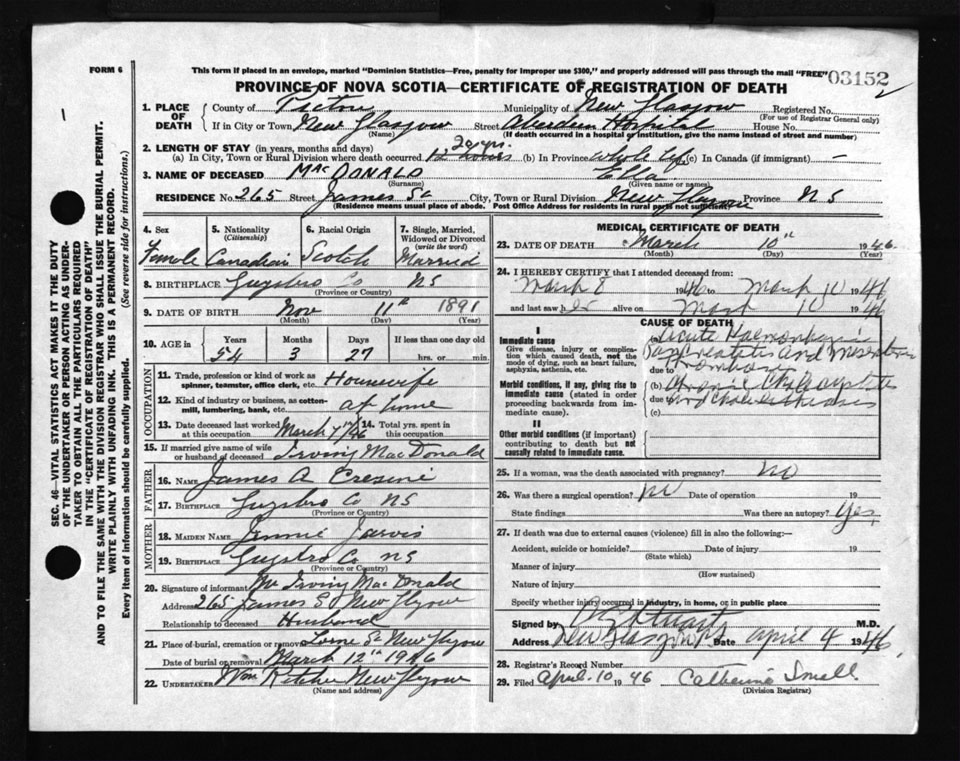 FORM 6
This form if placed in an envelope, marked "Dominion Statistics—Free, penalty for improper use $300," and properly addressed will pass through the mail "FREE"
03152
2
PROVINCE OF NOVA SCOTIA—CERTIFICATE OF REGISTRATION OF DEATH
1. PLACE OF DEATH
County of Pictou Municipality of New Glasgow Registered No.
(Name) (For use of Registrar General only)
If in City or Town New Glasgow Street Aberdeen Hospital House No.
(If death occurred in a hospital or institution, give the name instead of street and number)
2. LENGTH OF STAY (in years, months and days) 20 yrs.
(a) In City, Town or Rural Division where death occurred 12 hours (b) In Province whole life (c) In Canada (if immigrant) —
3. NAME OF DECEASED MacDONALD Ella
(Surname) (Given name or names)
RESIDENCE No. 265 Street James St City, Town or Rural Division New Glasgow Province NS
(Residence means usual place of abode. Post Office Address for residents in rural parts not sufficient)
4. Sex Female
5. Nationality (Citizenship) Canadian
6. Racial Origin Scotch
7. Single, Married, Widowed or Divorced (write the word) Married
8. BIRTHPLACE Guysboro Co NS
(Province or Country)
9. DATE OF BIRTH Nov 11th 1891
(Month) (Day) (Year)
10. AGE in Years Months Days If less than one day old
54 3 27 hrs. or min.
OCCUPATION
11. Trade, profession or kind of work as spinner, teamster, office clerk, etc. Housewife
12. Kind of industry or business, as cotton-mill, lumbering, bank, etc. at home
13. Date deceased last worked at this occupation March 7th/46
14. Total yrs. spent in this occupation
15. If married give name of wife or husband of deceased Irving MacDonald
FATHER
16. NAME James A
17. BIRTHPLACE Guysboro Co NS
(Province or Country)
MOTHER
18. MAIDEN NAME Jennie Jarvis
19. BIRTHPLACE Guysboro Co NS
(Province or Country)
20. Signature of informant Mr Irving MacDonald
Address 265 James St New Glasgow
Relationship to deceased Husband
21. Place of burial, cremation or removal Lorne St New Glasgow
Date of burial or removal March 12th 1946
22. UNDERTAKER Wm New Glasgow
(Name and address)
MEDICAL CERTIFICATE OF DEATH
23. DATE OF DEATH March 10th 1946
(Month) (Day) (Year)
24. I HEREBY CERTIFY that I attended deceased from:
March 8 1946 to March 10 1946
and last saw alive on March 10 1946
CAUSE OF DEATH
I
Immediate cause
Give disease, injury or complication which caused death, not the mode of dying, such as heart failure, asphyxia, asthenia, etc.
(a) Acute Haemorrhagic
Pancreatitis and Mesenteric
due to Thrombosis
Morbid conditions, if any, giving rise to immediate cause (stated in order proceeding backwards from immediate cause).
(b) Chronic Cholecystitis
due to and Cholelithiasis
(c)
II
Other morbid conditions (if important) contributing to death but not causally related to immediate cause.
25. If a woman, was the death associated with pregnancy? No
26. Was there a surgical operation? No Date of operation 19
State findings Was there an autopsy? Yes,
27. If death was due to external causes (violence) fill in also the following:—
Accident, suicide or homicide? Date of injury 19
(State which)
Manner of injury
(How sustained)
Nature of injury
Specify whether injury occurred in industry, in home, or in public place
Signed by Stuart M.D.
Address New Glasgow NS Date April 4 1946
28. Registrar's Record Number
29. Filed April 10 1946 Catherine Small
(Division Registrar)
SEC. 46—VITAL STATISTICS ACT MAKES IT THE DUTY
OF THE UNDERTAKER OR PERSON ACTING AS UNDER-
TAKER TO OBTAIN ALL THE PARTICULARS REQUIRED
IN THE "CERTIFICATE OF REGISTRATION OF DEATH"
AND TO FILE THE SAME WITH THE DIVISION REGISTRAR WHO SHALL ISSUE THE BURIAL PERMIT.
WRITE PLAINLY WITH UNFADING INK. THIS IS A PERMANENT RECORD.
Every item of information should be carefully supplied. (See reverse side for instructions.)